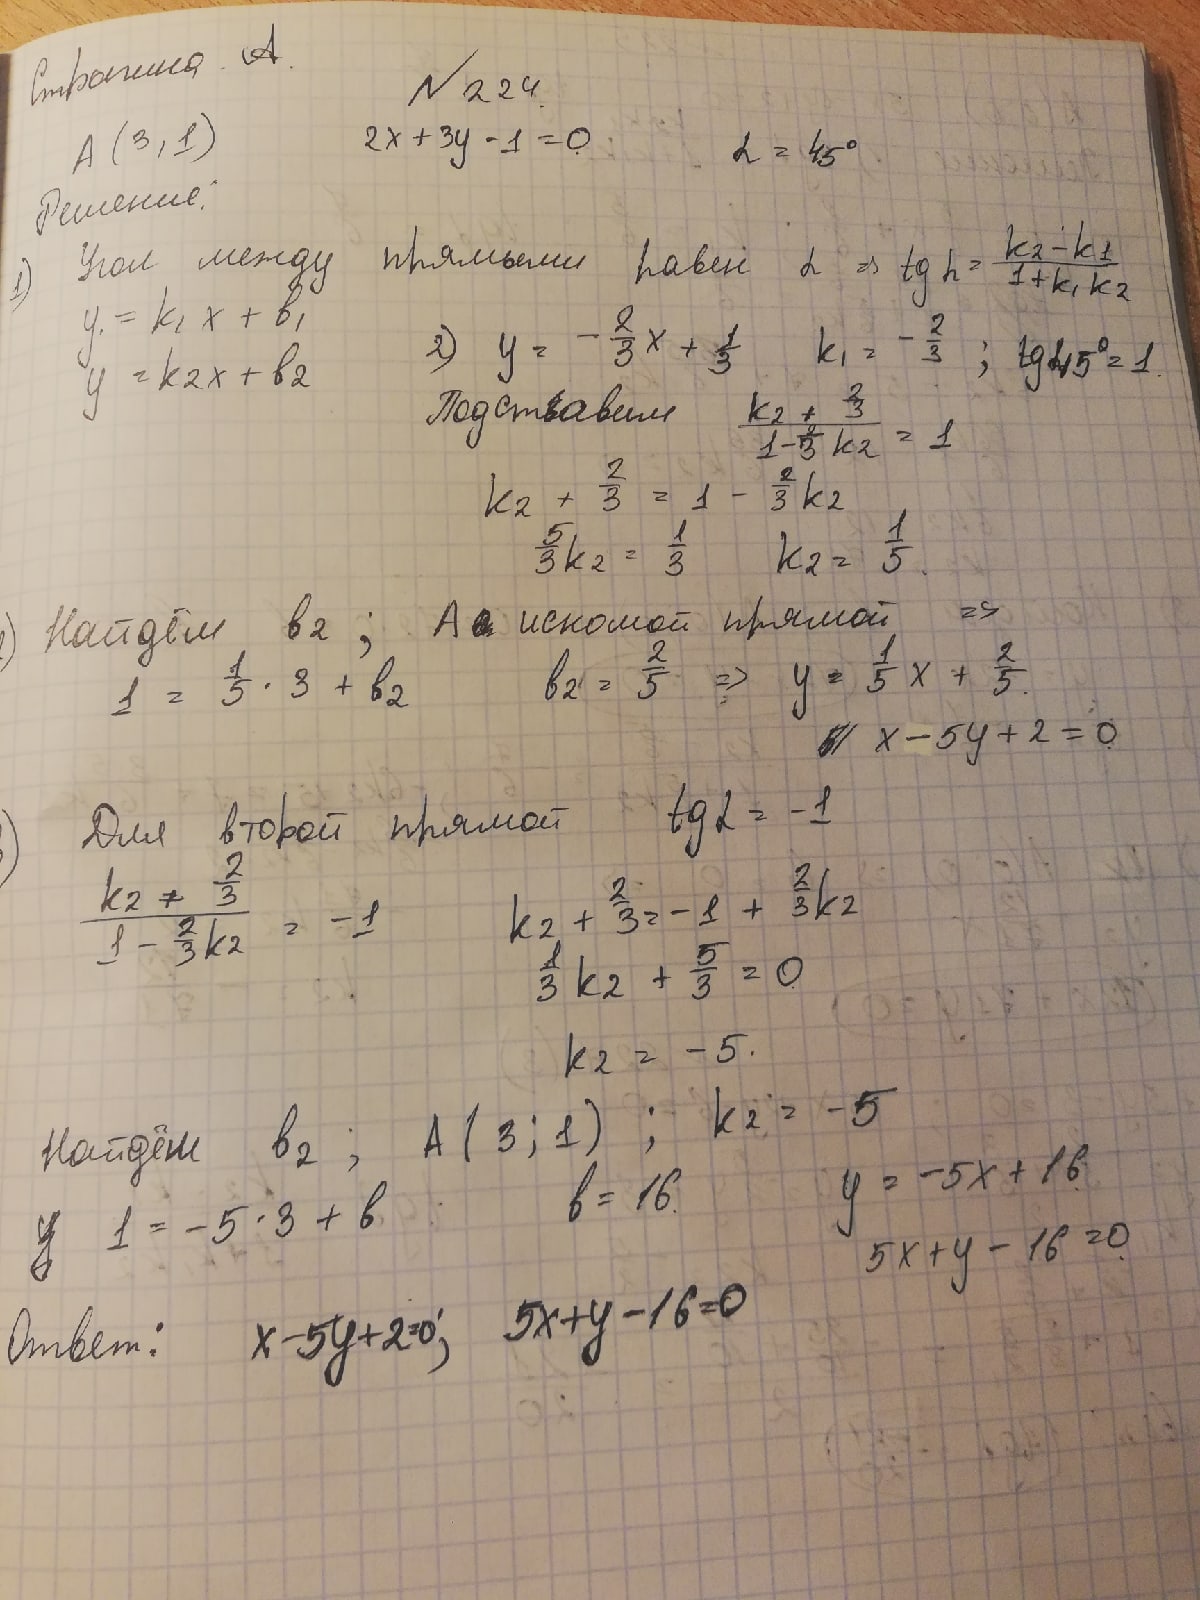 Страница А.
N 224.
A(3,1) 2x+3y-1=0 α=45°
Решение:
1) Угол между прямыми равен α => tg α = (k2-k1)/(1+k1k2)
y = k1x + b1
y = k2x + b2
2) y = -2/3x + 1/3 k1 = -2/3; tg45°=1.
Подставим (k2 + 2/3)/(1-2/3k2) = 1
k2 + 2/3 = 1 - 2/3k2
5/3k2 = 1/3 k2 = 1/5.
Найдём b2; A ∈ искомой прямой =>
1 = 1/5·3 + b2 b2 = 2/5 => y = 1/5x + 2/5.
x-5y+2=0
Для второй прямой tgα = -1
(k2 + 2/3)/(1-2/3k2) = -1 k2 + 2/3 = -1 + 2/3k2
1/3k2 + 5/3 = 0
k2 = -5.
Найдём b2; A(3;1); k2 = -5
1 = -5·3 + b b = 16. y = -5x+16
5x+y-16=0
Ответ: x-5y+2=0; 5x+y-16=0